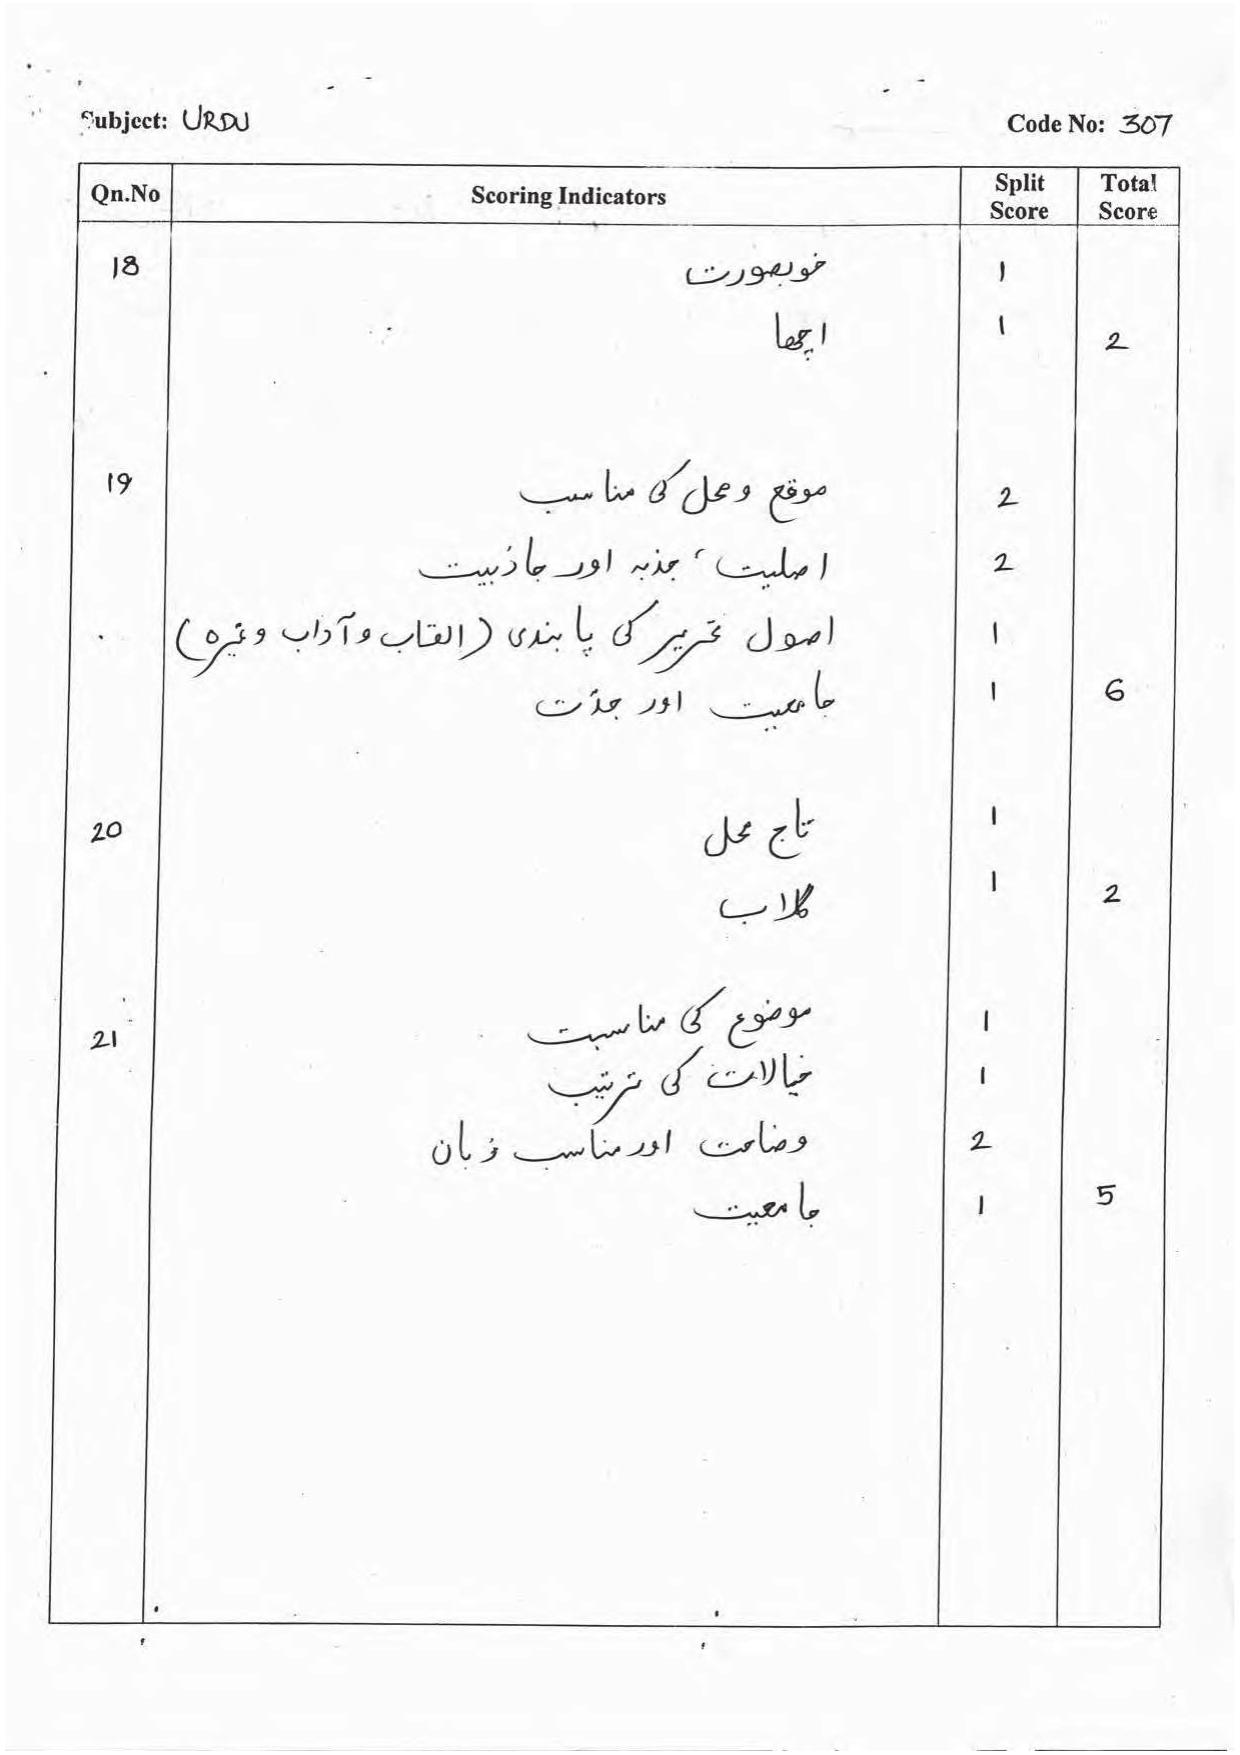 Subject: URDU Code No: 307
Qn.No Scoring Indicators Split Score Total Score
18 خوبصورت 1
اچھا 1 2
19 موقع و محل کی مناسب 2
اصلیت، جذبہ اور جاذبیت 2
اصول تحریر کی پابندی (القاب و آداب وغیرہ) 1
جامعیت اور جدّت 1 6
20 تاج محل 1
گلاب 1 2
21 موضوع کی مناسبت 1
خیالات کی ترتیب 1
وضاحت اور مناسب زبان 2
جامعیت 1 5